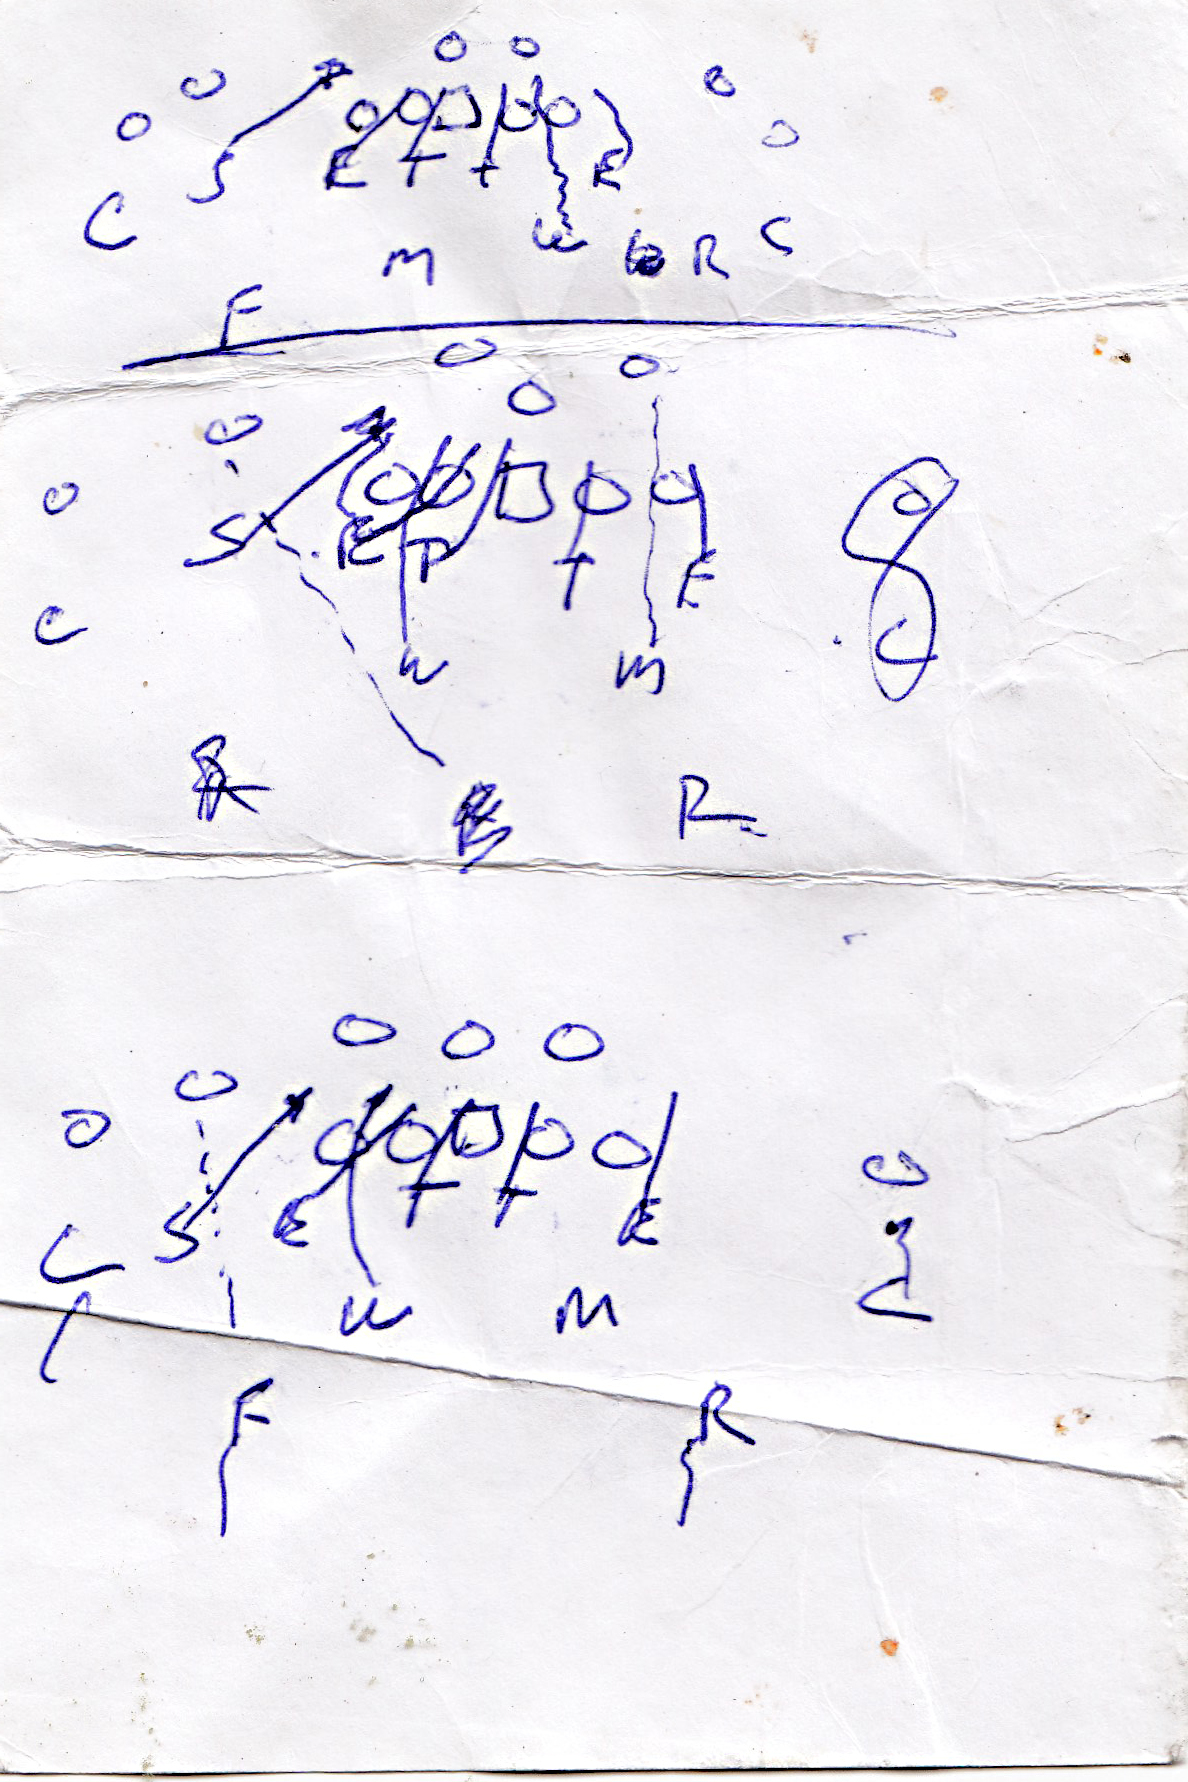 S E T T E
C M W R C
F
S E T T E
C W M C
R
S E T T E
C W M C
F R